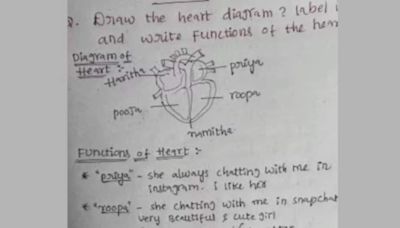 Q. Draw the heart diagram? label
and write functions of the hear
Diagram of
Heart :-
Haritha
priya
pooja
roopa
namitha
Functions of Heart :-
* "priya" - she always chatting with me in
instagram. I like her
* "roopa" - she chatting with me in snapchat
very beautiful & cute girl